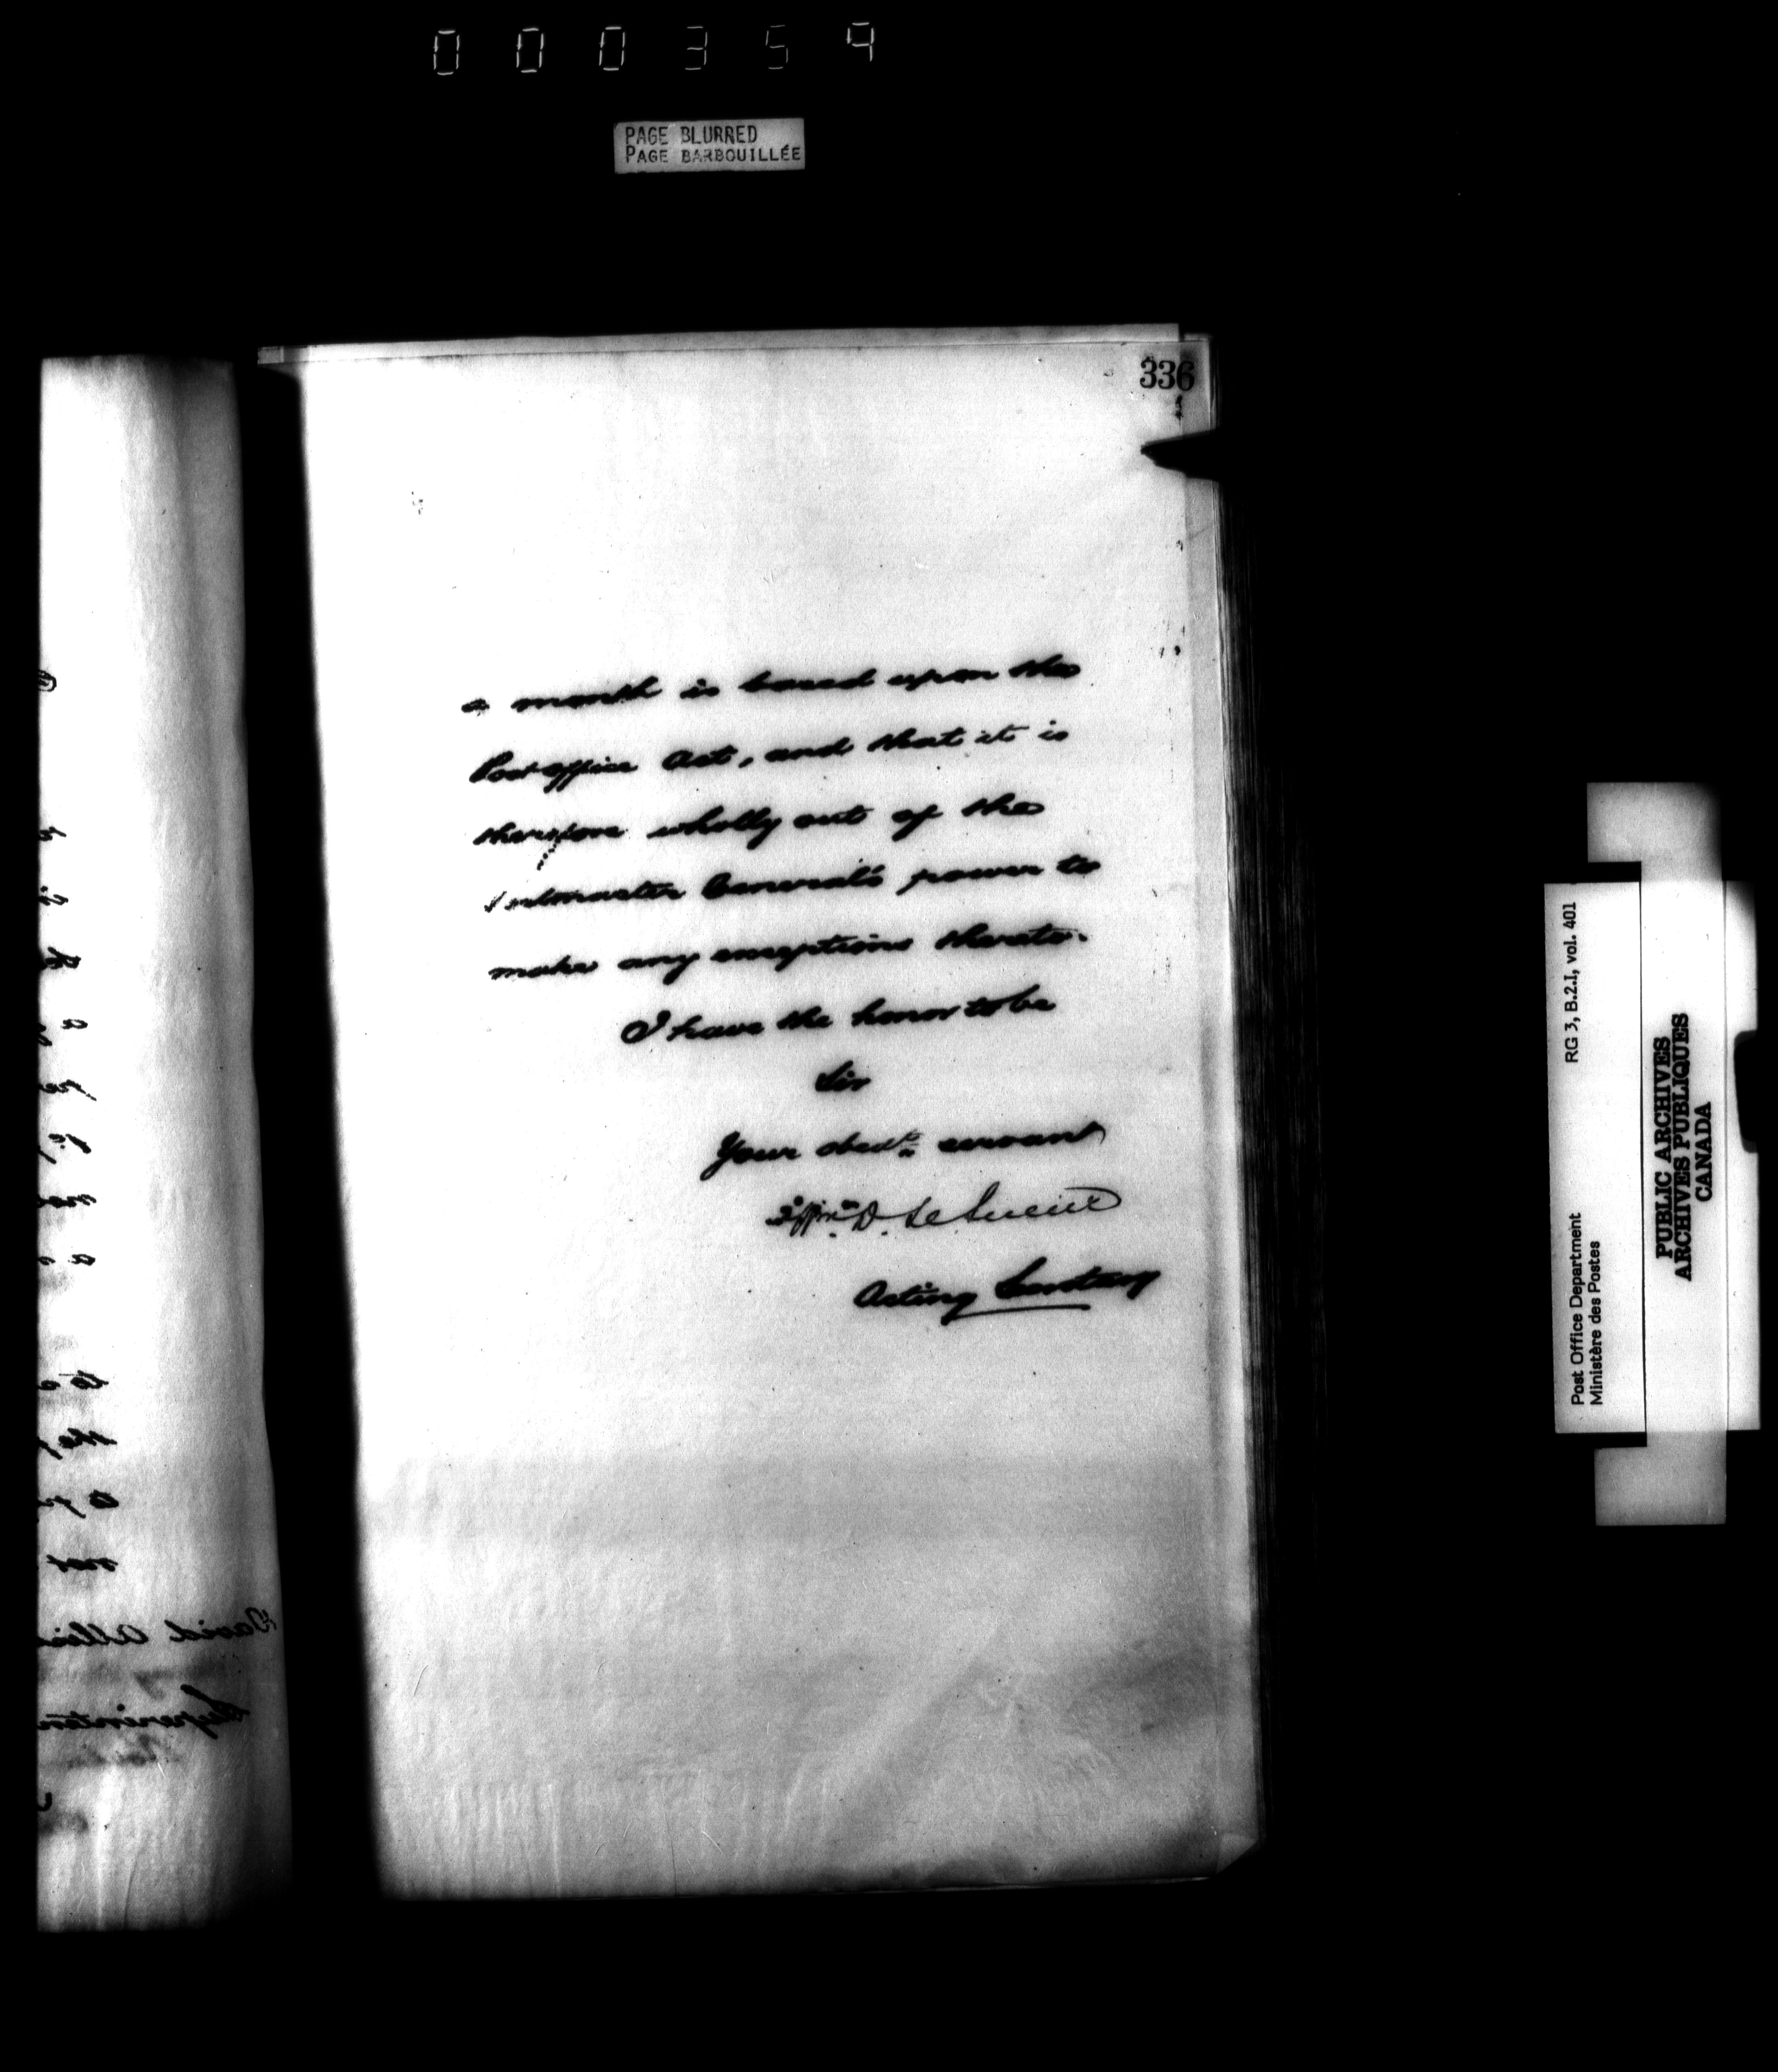 000354
PAGE BLURRED
PAGE BARBOUILLÉE
336
a month is based upon the
Post Office Act, and that it is
therefore wholly out of the
Postmaster General's power to
make any exceptions thereto.
I have the honor to be
Sir
Your obedt servant
D. Le Sueur
Acting Secretary
not
David
Superinten
Post Office Department
Ministère des Postes
RG 3, B.2.I, vol. 401
PUBLIC ARCHIVES
ARCHIVES PUBLIQUES
CANADA